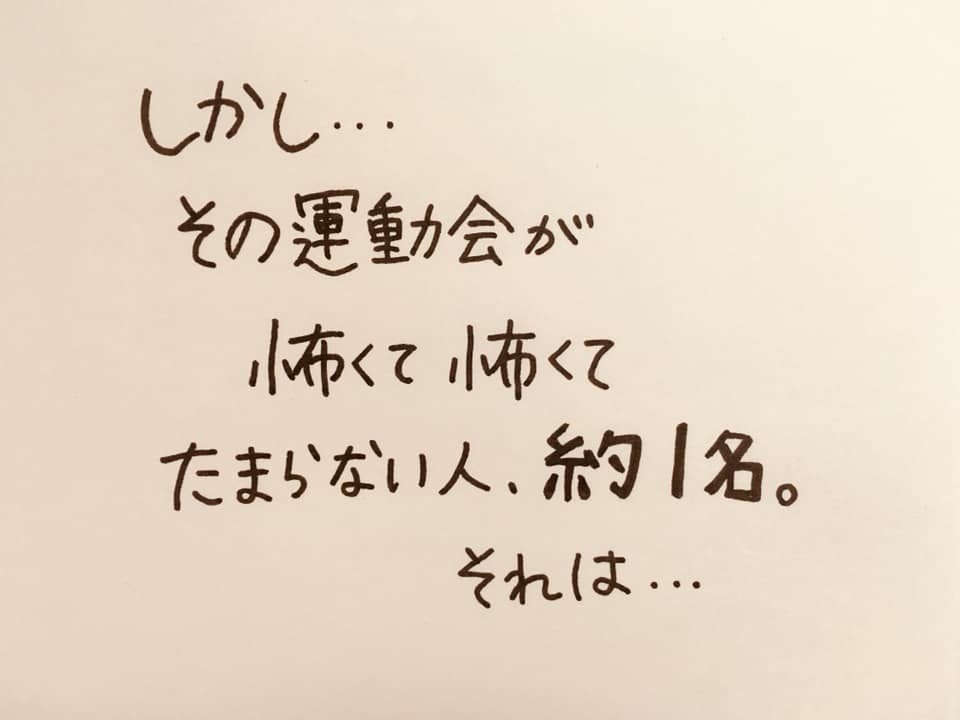 しかし…
その運動会が
怖くて 怖くて
たまらない人、約1名。
それは…